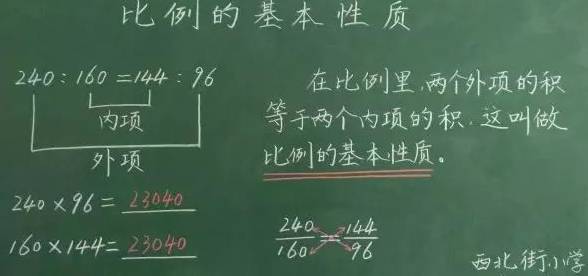 比例的基本性质
240:160=144:96
内项
外项
240×96=23040
160×144=23040
在比例里,两个外项的积
等于两个内项的积,这叫做
比例的基本性质。
240 = 144
160 96
西北街小学